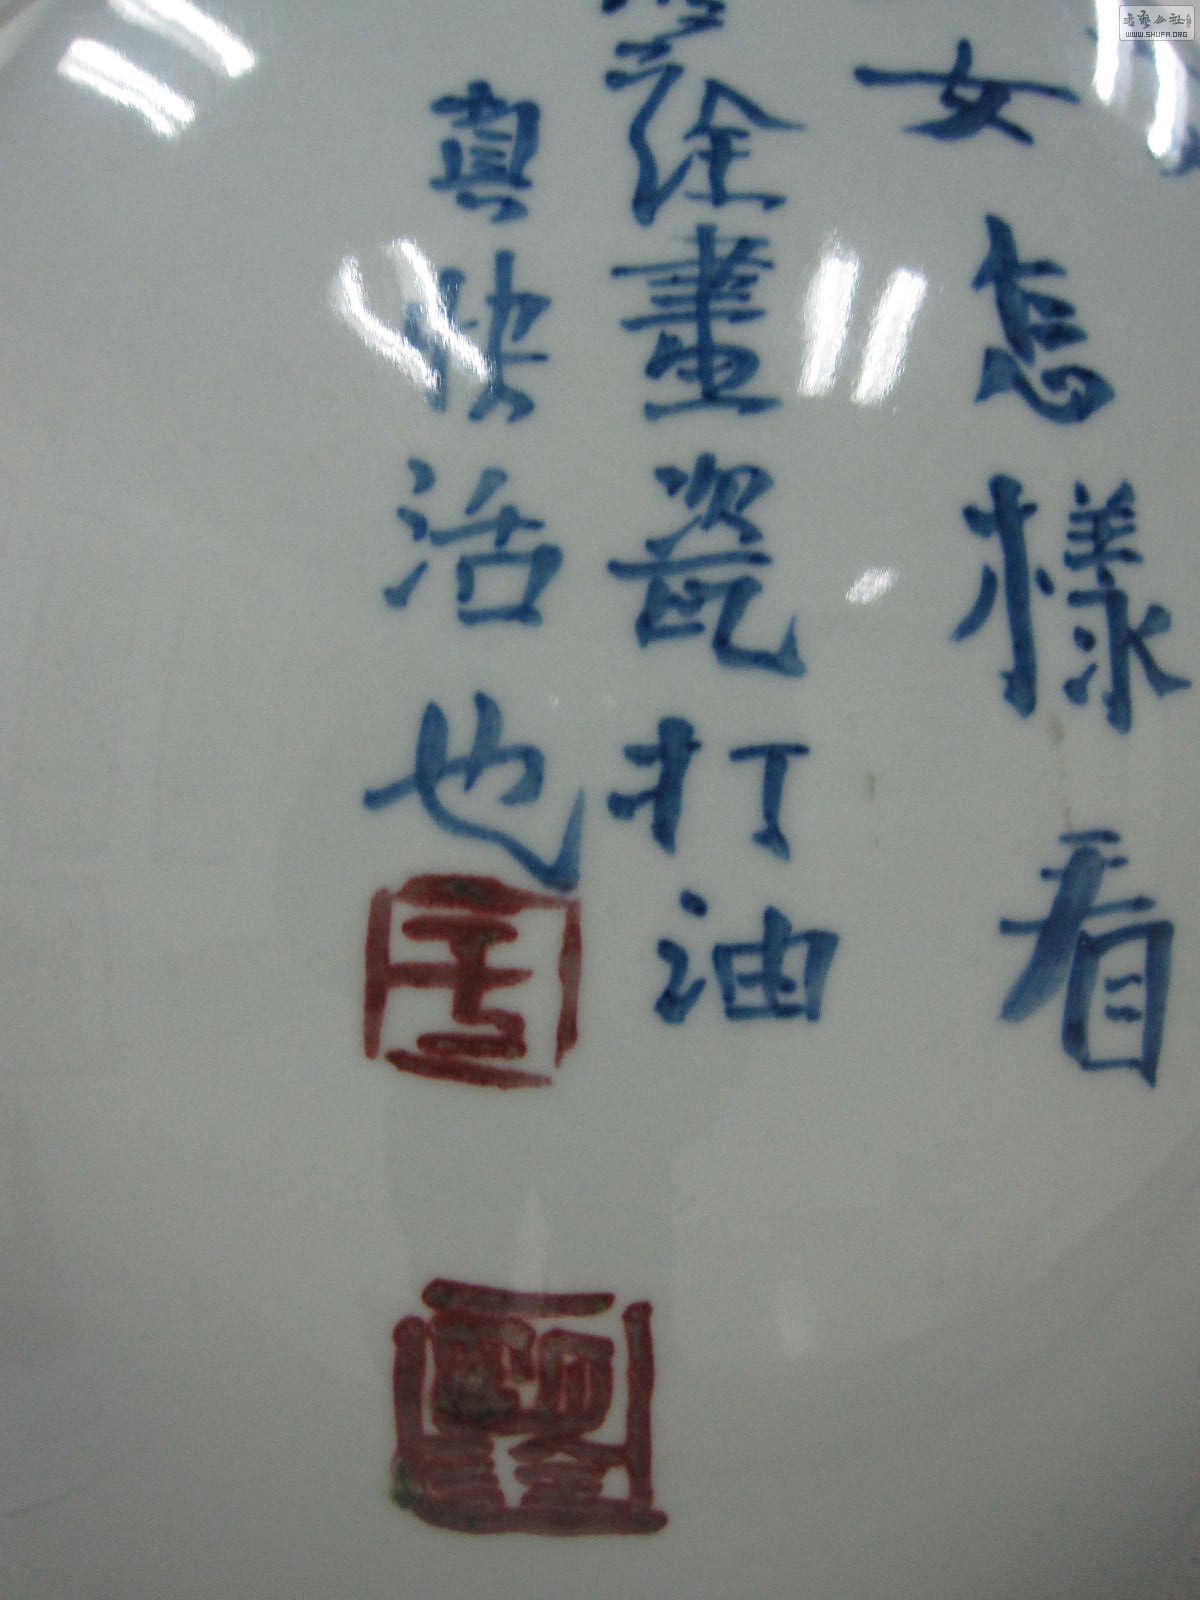 女怎樣看
畫瓷打油
真快活也
書藝公社
WWW.SHUFA.ORG